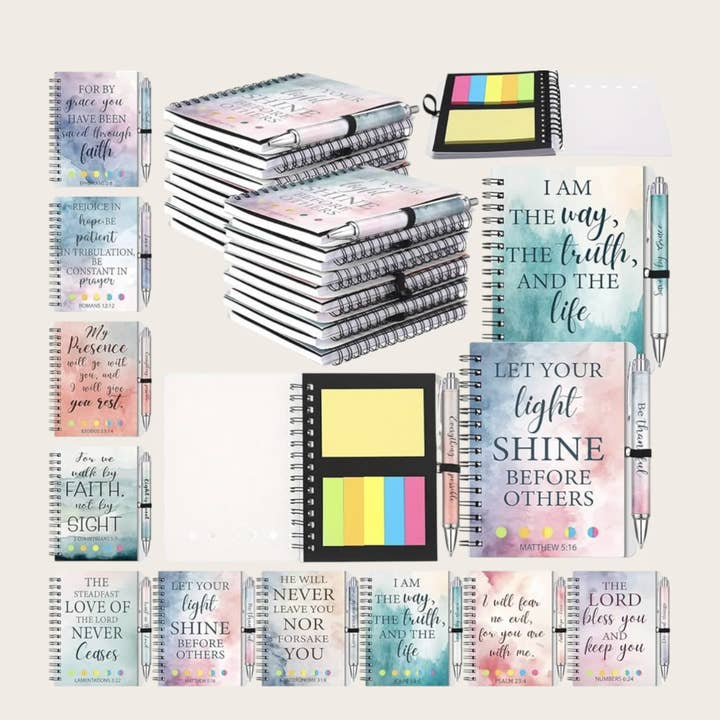 FOR BY
grace you
HAVE BEEN
saved through
faith
EPHESIANS 2:8
REJOICE IN
hope BE
patient
IN TRIBULATION,
BE
CONSTANT IN
prayer
ROMANS 12:12
My
Presence
will go with
you, and
I will give
you rest.
EXODUS 33:14
For we
walk by
FAITH,
not by
SIGHT
2 CORINTHIANS 5:7
YOUR
light
SHINE
BEFORE
OTHERS
YOUR
SHINE
OTHERS
I AM
THE way,
THE truth,
AND THE
life
Saved by Grace
LET YOUR
light
SHINE
BEFORE
OTHERS
MATTHEW 5:16
Be thankful
Everything possible
THE
STEADFAST
LOVE OF
THE LORD
NEVER
Ceases
LAMENTATIONS 3:22
LET YOUR
light
SHINE
BEFORE
OTHERS
MATTHEW 5:16
HE WILL
NEVER
LEAVE YOU
NOR
FORSAKE
YOU
I AM
THE way,
THE truth,
AND THE
life
I will fear
no evil,
for you are
with me.
PSALM 23:4
THE
LORD
bless you
AND
keep you
NUMBERS 6:24